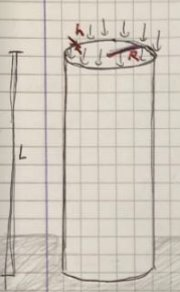 h
R
L